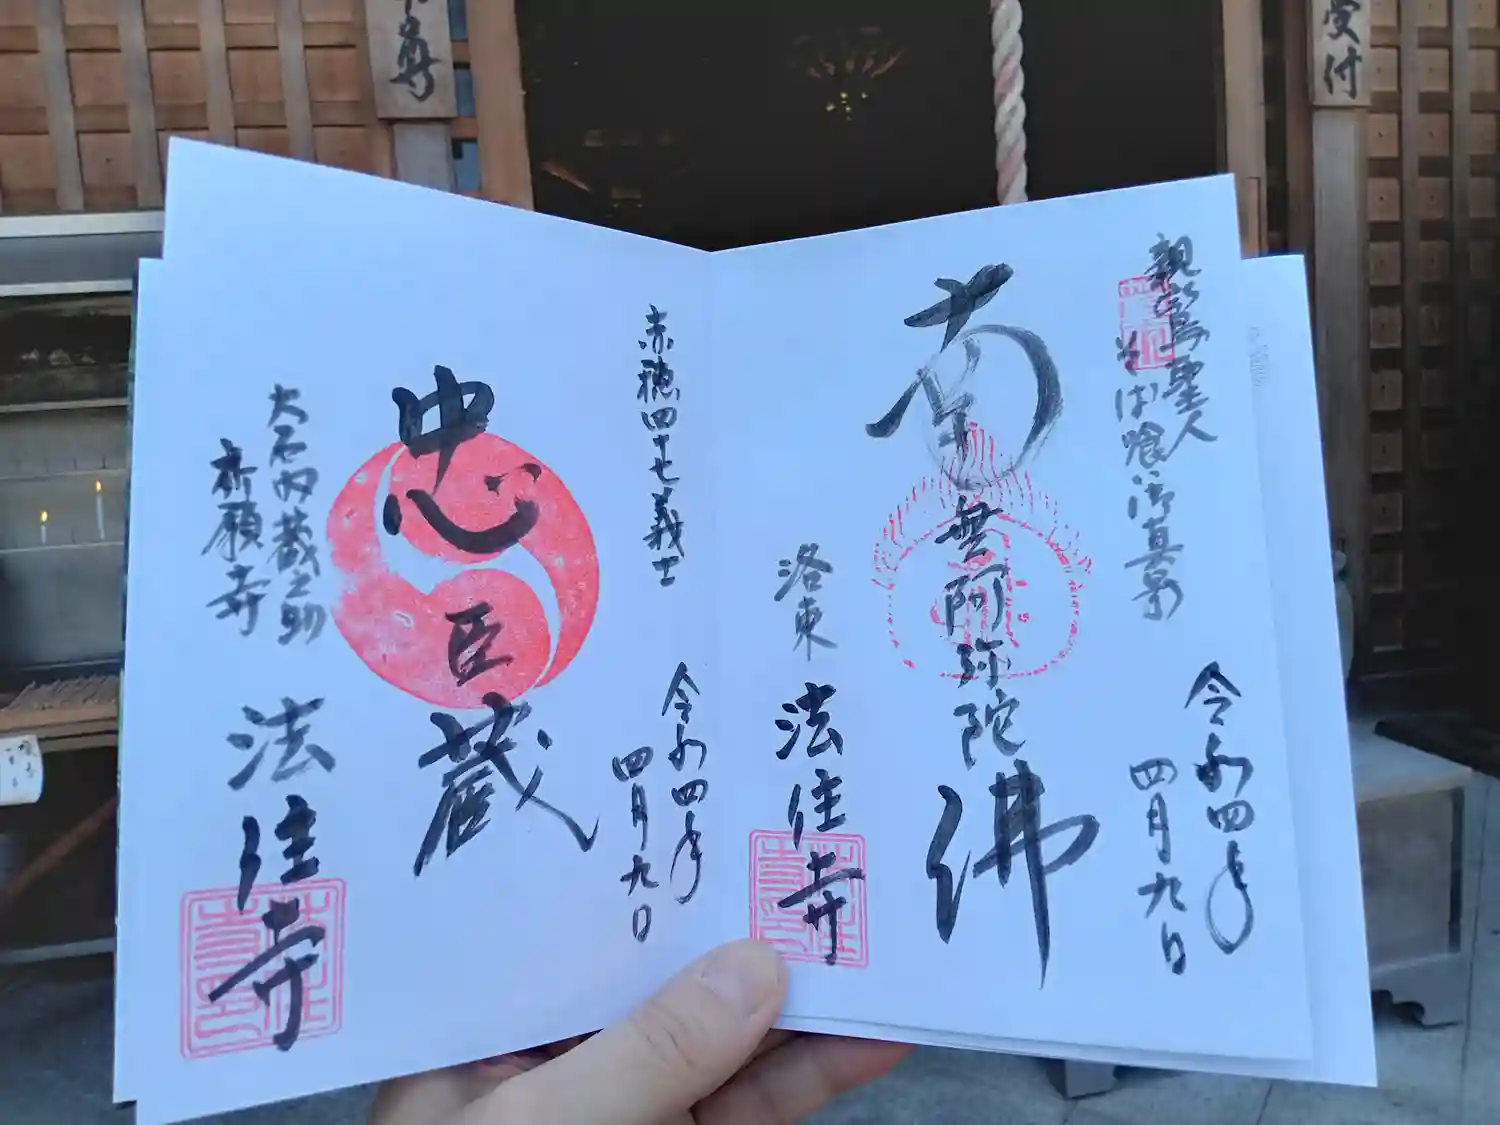 尊
受付
親鸞聖人
そば喰御真影
南無阿弥陀佛
令和四年
四月九日
洛東
法住寺
赤穂四十七義士
令和四年
四月九日
忠臣蔵
大石内蔵之助
祈願寺
法住寺